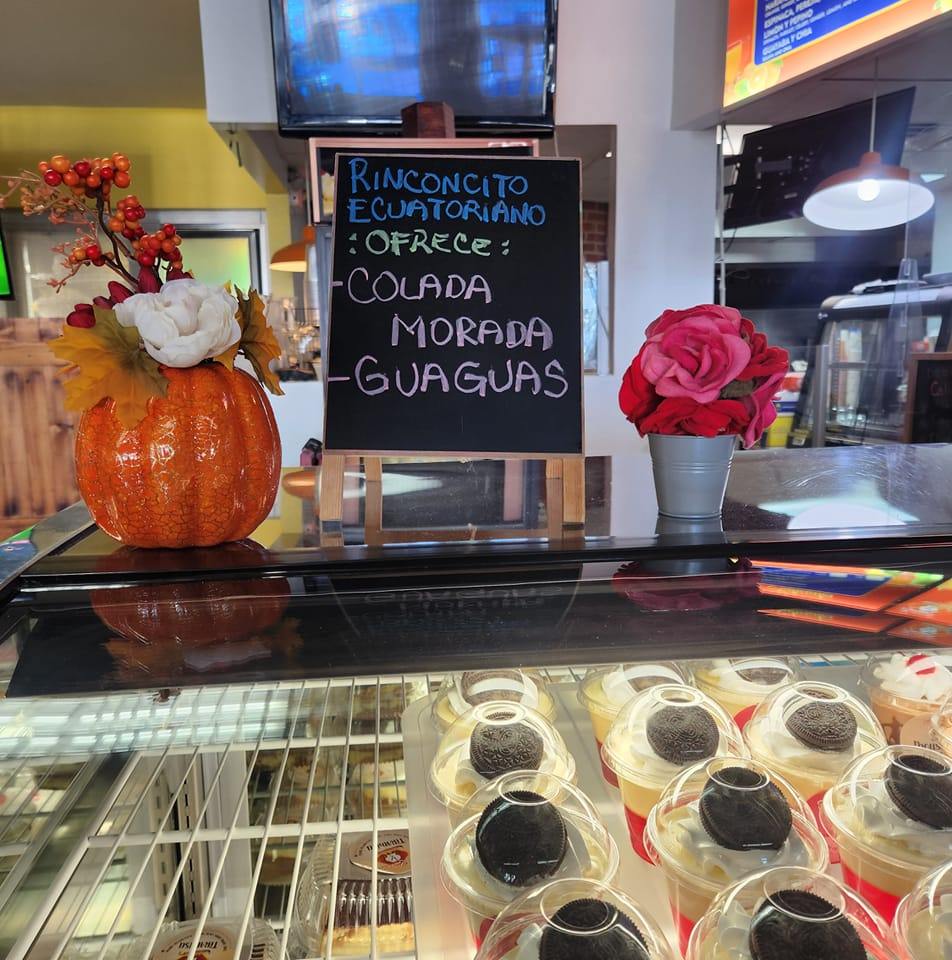 ESPINACA, 
LIMON Y PEPINO
GUAYABA Y CHIA
RINCONCITO
ECUATORIANO
:OFRECE:
-COLADA
MORADA
-GUAGUAS